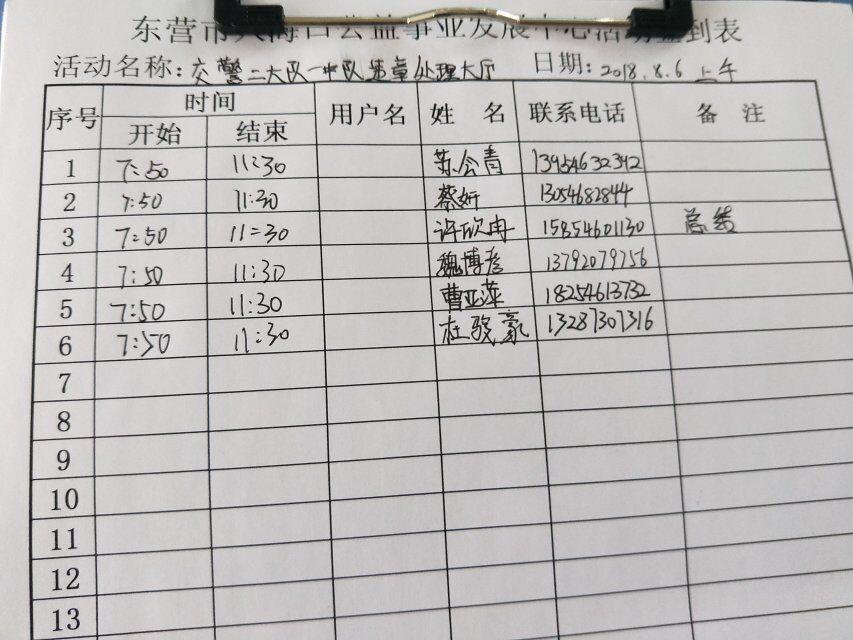 东营市大海口公益事业发展中心活动签到表
活动名称：交警二大队一中队违章处理大厅 日期：2018.8.6 上午
序号 时间 用户名 姓 名 联系电话 备 注
开始 结束
1 7:50 11:30 苏会青 13954632342
2 7:50 11:30 蔡妍 13054682844
3 7:50 11:30 许欣冉 15854601130 总结
4 7:50 11:30 魏博彦 13792079756
5 7:50 11:30 曹亚萍 18254613732
6 7:50 11:30 杜骏豪 13287307316
7
8
9
10
11
12
13